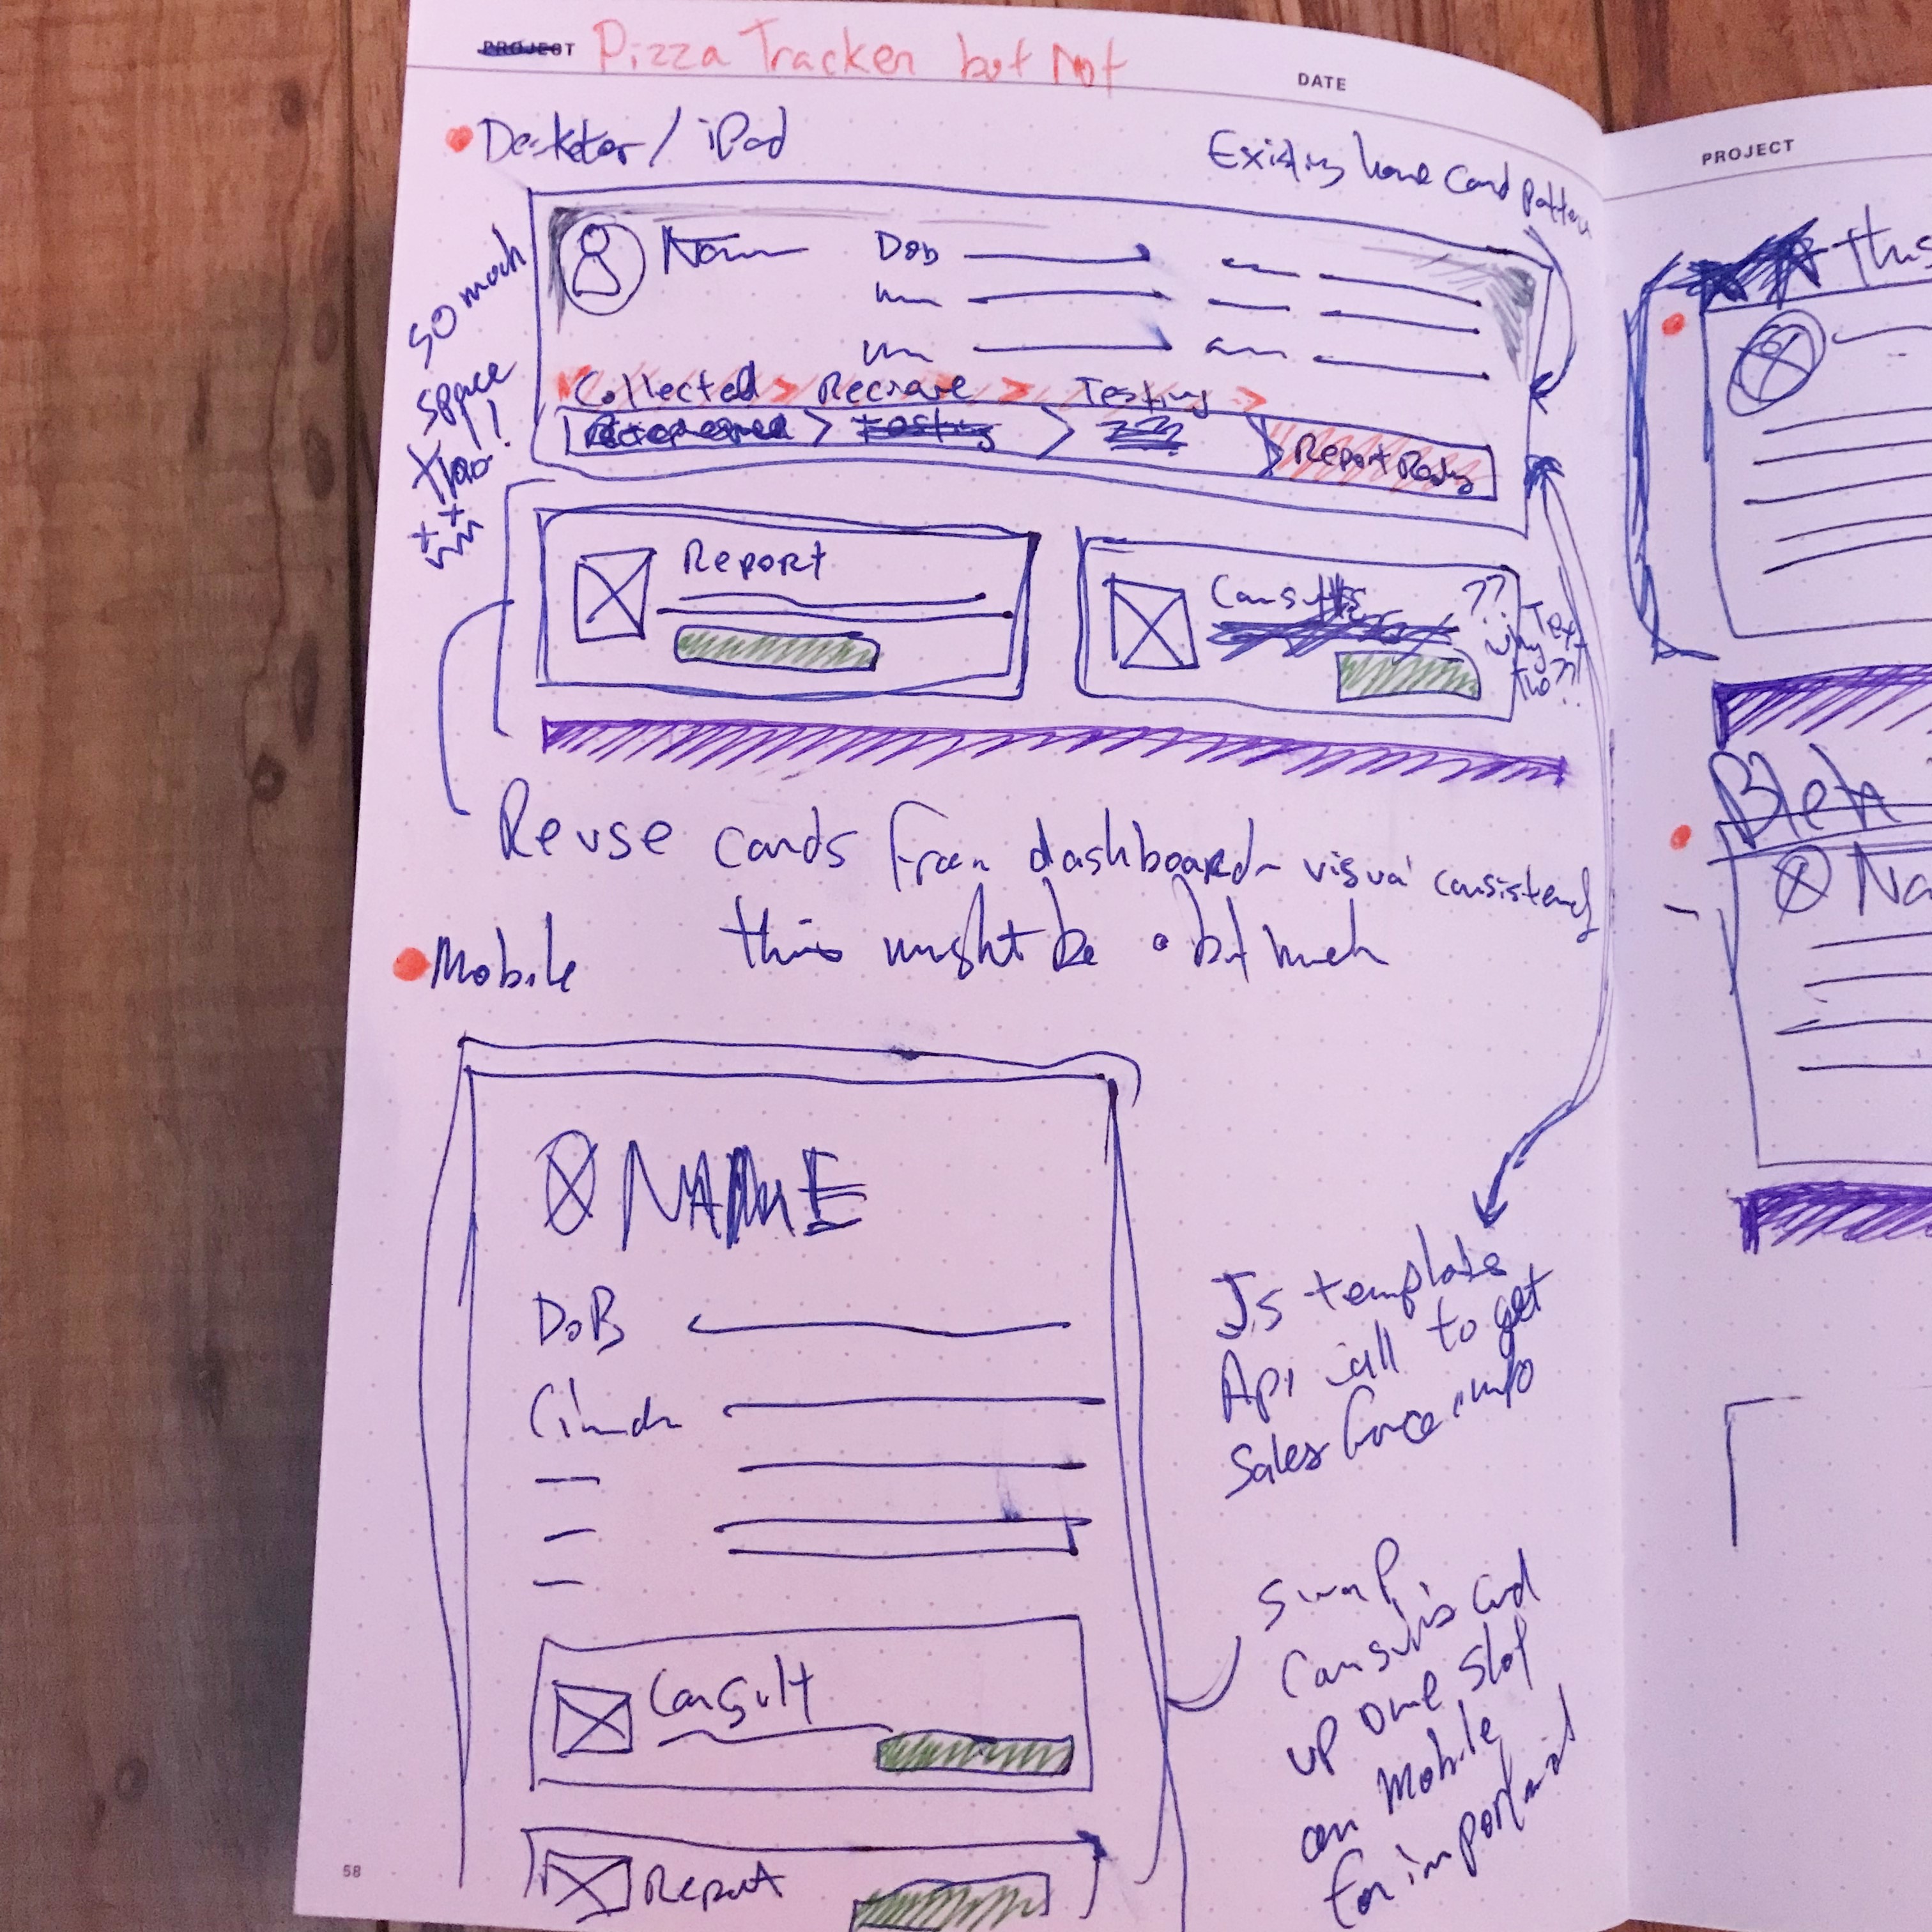 PROJECT Pizza Tracker but Not
DATE
Desktop / iPad
Existing home card pattern
so much
space
tho!!
Name
Dob
Collected > Recieve > Testing >
Report Ready
Report
Consults
??
why Text
tho??
Reuse cards from dashboard - visual consistency
this might be a bit much
Mobile
NAME
DoB
Consult
Report
JS template
Api call to get
Sales force info
Swap
Consults card
up one slot
on Mobile
for important
58
PROJECT
this
Bleh
Na